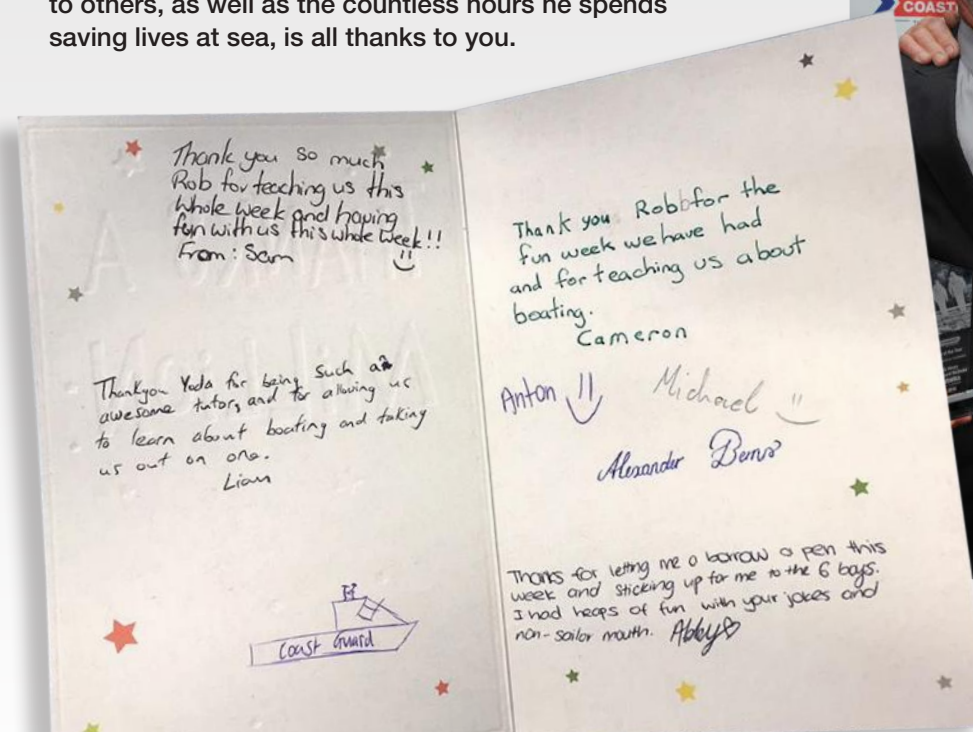 to others, as well as the countless hours he spends
saving lives at sea, is all thanks to you.
COAST
Thank you so much
Rob for teaching us this
whole week and having
fun with us this whole week!!
From: Sam
THANKS A
MILLION!
Thankyou Yoda for being such a
awesome tutor, and for allowing us
to learn about boating and taking
us out on one.
Liam
Coast Guard
Thank you Rob for the
fun week we have had
and for teaching us about
boating.
Cameron
Anton
Michael
Alexander
Thanks for letting me borrow a pen this
week and sticking up for me to the 6 boys.
I had heaps of fun with your jokes and
non-sailor mouth. Abby